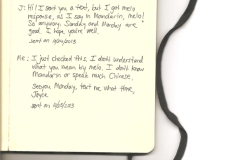 J: Hi! I sent you a text, but I got mera
response, as I say in Mandarin, mela!
So anyway, Sunday and Monday are
good. I hope you're well.
sent on
Me: I just checked this, I don't understand
what you mean by mela. I don't know
Mandarin or speak much Chinese.
See you Monday, text me what time,
Joyce.
sent on